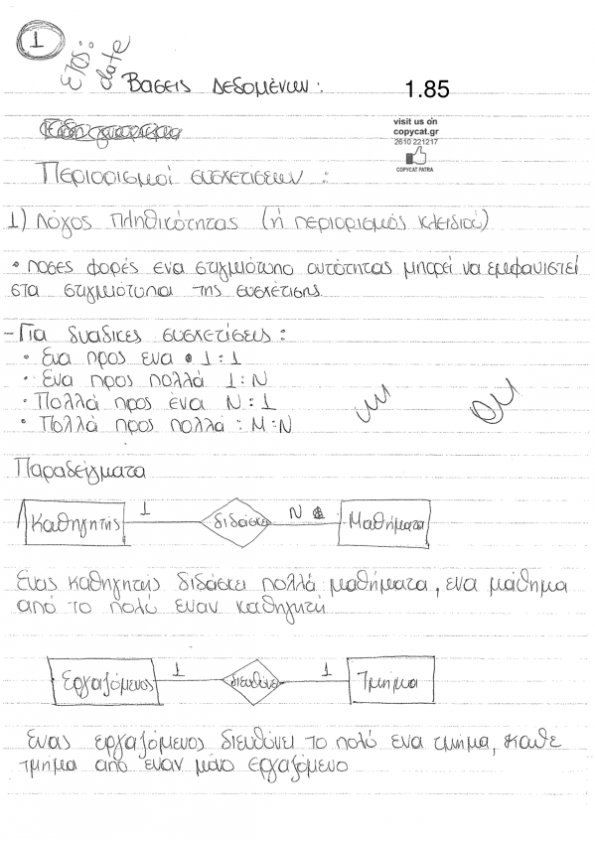 1
έτος:
date
Βασεις Δεδομένων:
1.85
visit us on
copycat.gr
2610 221217
COPYCAT PATRA
Περιορισμοί συσχετίσεων :
1) Λόγος πληθικότητας (ή περιορισμός κλειδιού)
• ποσες φορές ενα στιγμιότυπο οντότητας μπορεί να εμφανιστεί
στα στιγμιότυπα της συσχέτισης
- Για δυαδικες συσχετίσεις :
• Ενα προς ενα 1:1
• Ενα προς πολλά 1:N
• Πολλά προς ένα N:1
• Πολλά προς πολλά : M:N
Παραδείγματα
Καθηγητής 1 διδάσκει N Μαθήματα
Ενας καθηγητής διδάσκει πολλά μαθήματα, ενα μάθημα
από το πολύ εναν καθηγητή
Εργαζόμενος 1 διευθύνει 1 Τμήμα
Ενας εργαζόμενος διευθύνει το πολύ ενα τμήμα, καθε
τμημα απο εναν μόνο εργαζόμενο